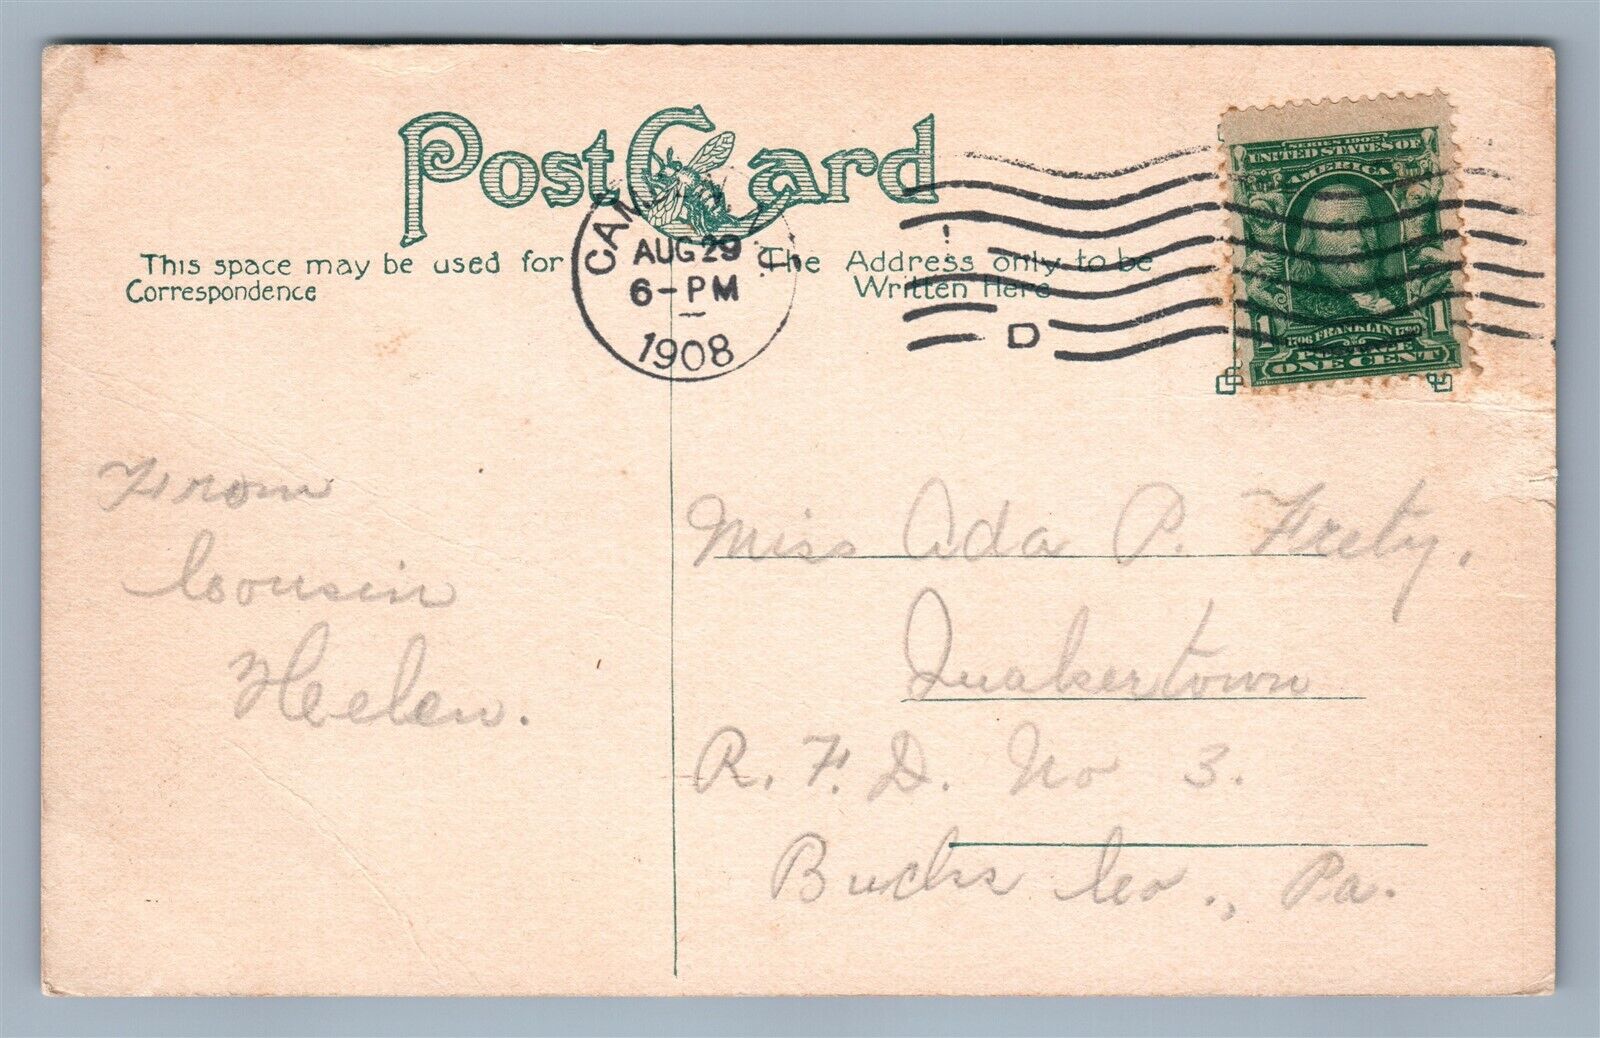 Post Card
This space may be used for
Correspondence
The Address only to be
Written Here
AUG 29
6-PM
1908
D
SERIES 1902
UNITED STATES OF
AMERICA
1706 FRANKLIN 1790
1 1
POSTAGE
ONE CENT
From
Cousin
Heelen.
Miss Ada P. Frety,
Quakertown
R. F. D. No 3.
Bucks Co., Pa.